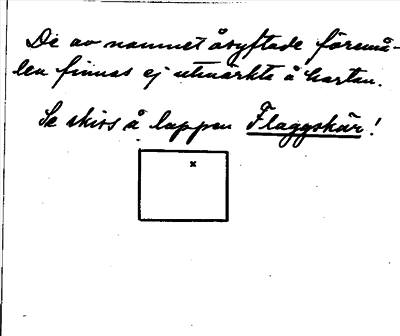 De av namnet åsyftade föremå-
len finnas ej utmärkta å kartan.
Se skiss å lappen Flaggskär!
x